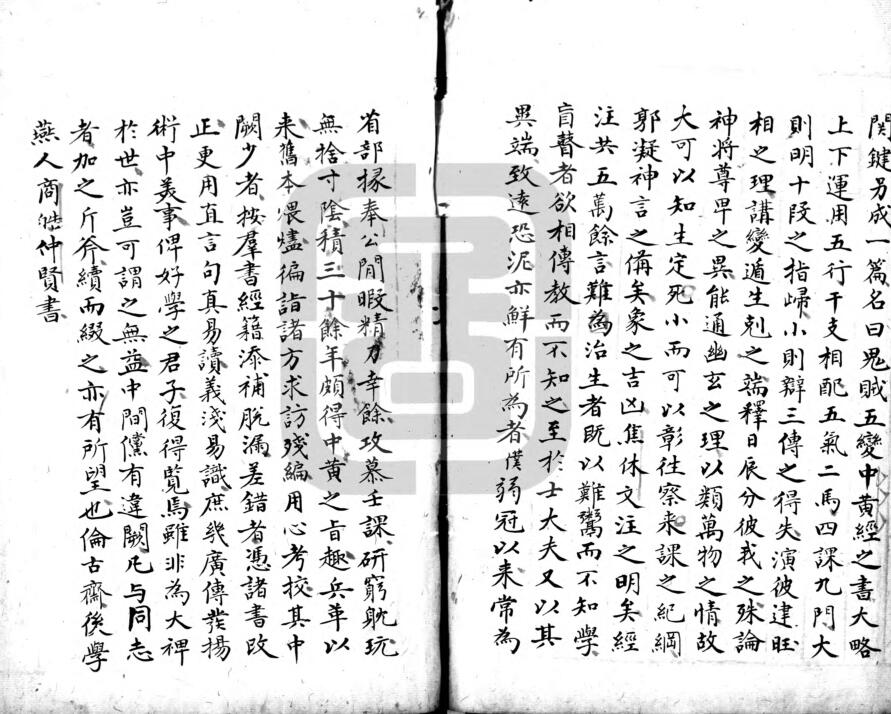 関鍵另成一篇名曰鬼賊五變中黄經之書大略
上下運用五行干支相配五氣二馬四課九門大
則明十叚之指歸小則辯三傳之得失演彼建旺
相之理講變遁生剋之端釋日辰分彼我之殊論
神將尊卑之異能通幽玄之理以類萬物之情故
大可以知生定死小而可以彰往察来課之紀綱
郭凝神言之俻矣象之吉凶焦休文注之明矣經
注共五萬餘言難為治生者既以難鬻而不知學
盲瞽者欲相傳教而不知之至於士大夫又以其
異端致遠恐泥亦鮮有所為者僕弱冠以来常為
省部掾奉公閒暇精力幸餘攻慕壬課研窮躭玩
無捨寸陰積三十餘年頗得中黄之旨趣兵革以
来舊本煨燼徧詣諸方求訪殘編用心考挍其中
闕少者按羣書經籍添補脱漏差錯者憑諸書改
正更用直言句真易讀義淺易識庶幾廣傳發揚
術中美事俾好學之君子復得覧焉雖非為大裨
於世亦豈可謂之無益中間儻有違闕凡与同志
者加之斤斧續而綴之亦有所望也倫古齋後學
燕人商 仲賢書